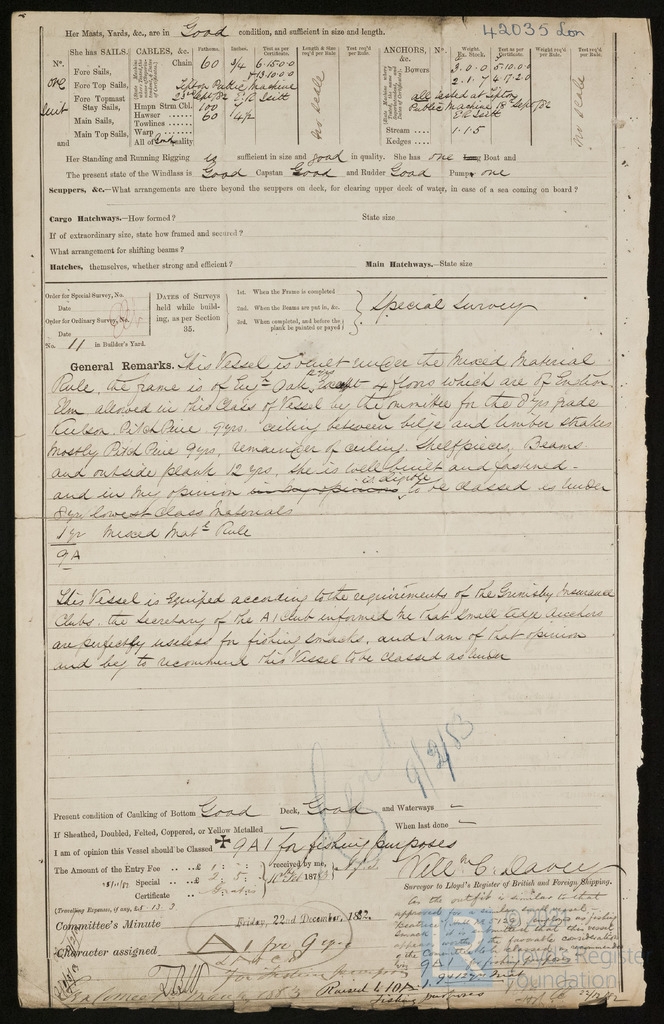 42035 Lon
Her Masts, Yards, &c., are in Good condition, and sufficient in size and length.
She has SAILS.
No.
one
Suit
and
Fore Sails,
Fore Top Sails,
Fore Topmast
Stay Sails,
Main Sails,
Main Top Sails,
CABLES, &c.
Fathoms.
Inches.
Test as per Certificate.
Length & Size req'd per Rule
Test req'd per Rule.
Chain 60 3/4 6.15.0.0
Tipton Public Machine
Hmpn Strm Cbl. 100
Hawser 60 4 1/2
Towlines
Warp
All of Good quality
No Scale
ANCHORS, &c.
No.
Weight. Ex. Stock.
Test as per Certificate.
Weight req'd per Rule
Test req'd per Rule.
Bowers
3.0.0 5.10.0.0
2.1.7 4.17.2.0
all tested at Tipton
Public Machine 18th Sept/82
Stream 1.1.5
Kedges
No Scale
Her Standing and Running Rigging is sufficient in size and good in quality. She has one Long Boat and
The present state of the Windlass is Good Capstan Good and Rudder Good Pumps one
Scuppers, &c.—What arrangements are there beyond the scuppers on deck, for clearing upper deck of water, in case of a sea coming on board?
Cargo Hatchways.—How formed? State size
If of extraordinary size, state how framed and secured?
What arrangement for shifting beams?
Hatches, themselves, whether strong and efficient? Main Hatchways.—State size
Order for Special Survey, No.
Date
Order for Ordinary Survey, No.
Date
No. 11 in Builder's Yard.
DATES of Surveys held while building, as per Section 35.
1st. When the Frame is completed
2nd. When the Beams are put in, &c.
3rd. When completed, and before the plank be painted or payed
Special Survey
General Remarks. This Vessel is built under the Mixed Material
Rule, the frame is of Eng. Oak 12 yrs, Except 4 floors which are of English
Elm allowed in this Class of Vessel by the Committee for the 8 yrs grade
Keelson Pitch Pine 9 yrs. ceiling between bilge and limber strakes
mostly Pitch Pine 9 yrs, remainder of ceiling, Shelfpieces, Beams
and outside plank 12 yrs. She is well built and fastened
and in my opinion in my opinion is eligible to be classed as under
8 yrs lowest Class Materials
1 yr Mixed Matl Rule
9 A
This Vessel is Equiped according to the requirements of the Grimsby Insurance
Clubs, the Secretary of the A1 Club informed me that Small Kedge Anchors
are perfectly useless for fishing smacks, and I am of that opinion
and beg to recommend this Vessel to be classed as under
9/3/83
Present condition of Caulking of Bottom Good Deck, Good and Waterways —
If Sheathed, Doubled, Felted, Coppered, or Yellow Metalled — When last done —
I am of opinion this Vessel should be Classed ✠ 9 A 1 for fishing purposes
The Amount of the Entry Fee .. £ 1 : : received by me,
Special .. £ 2 : 5 :
Certificate .. Gratis
(Travelling Expenses, if any, £
Willm C. Davey
Surveyor to Lloyd's Register of British and Foreign Shipping.
Committee's Minute Friday, 22nd December, 1882.
Character assigned A 1 for 9 yrs
for fishing purposes
As the outfit is similar to that
approved for a similar
for fishing purposes
Lloyd's Register
Foundation